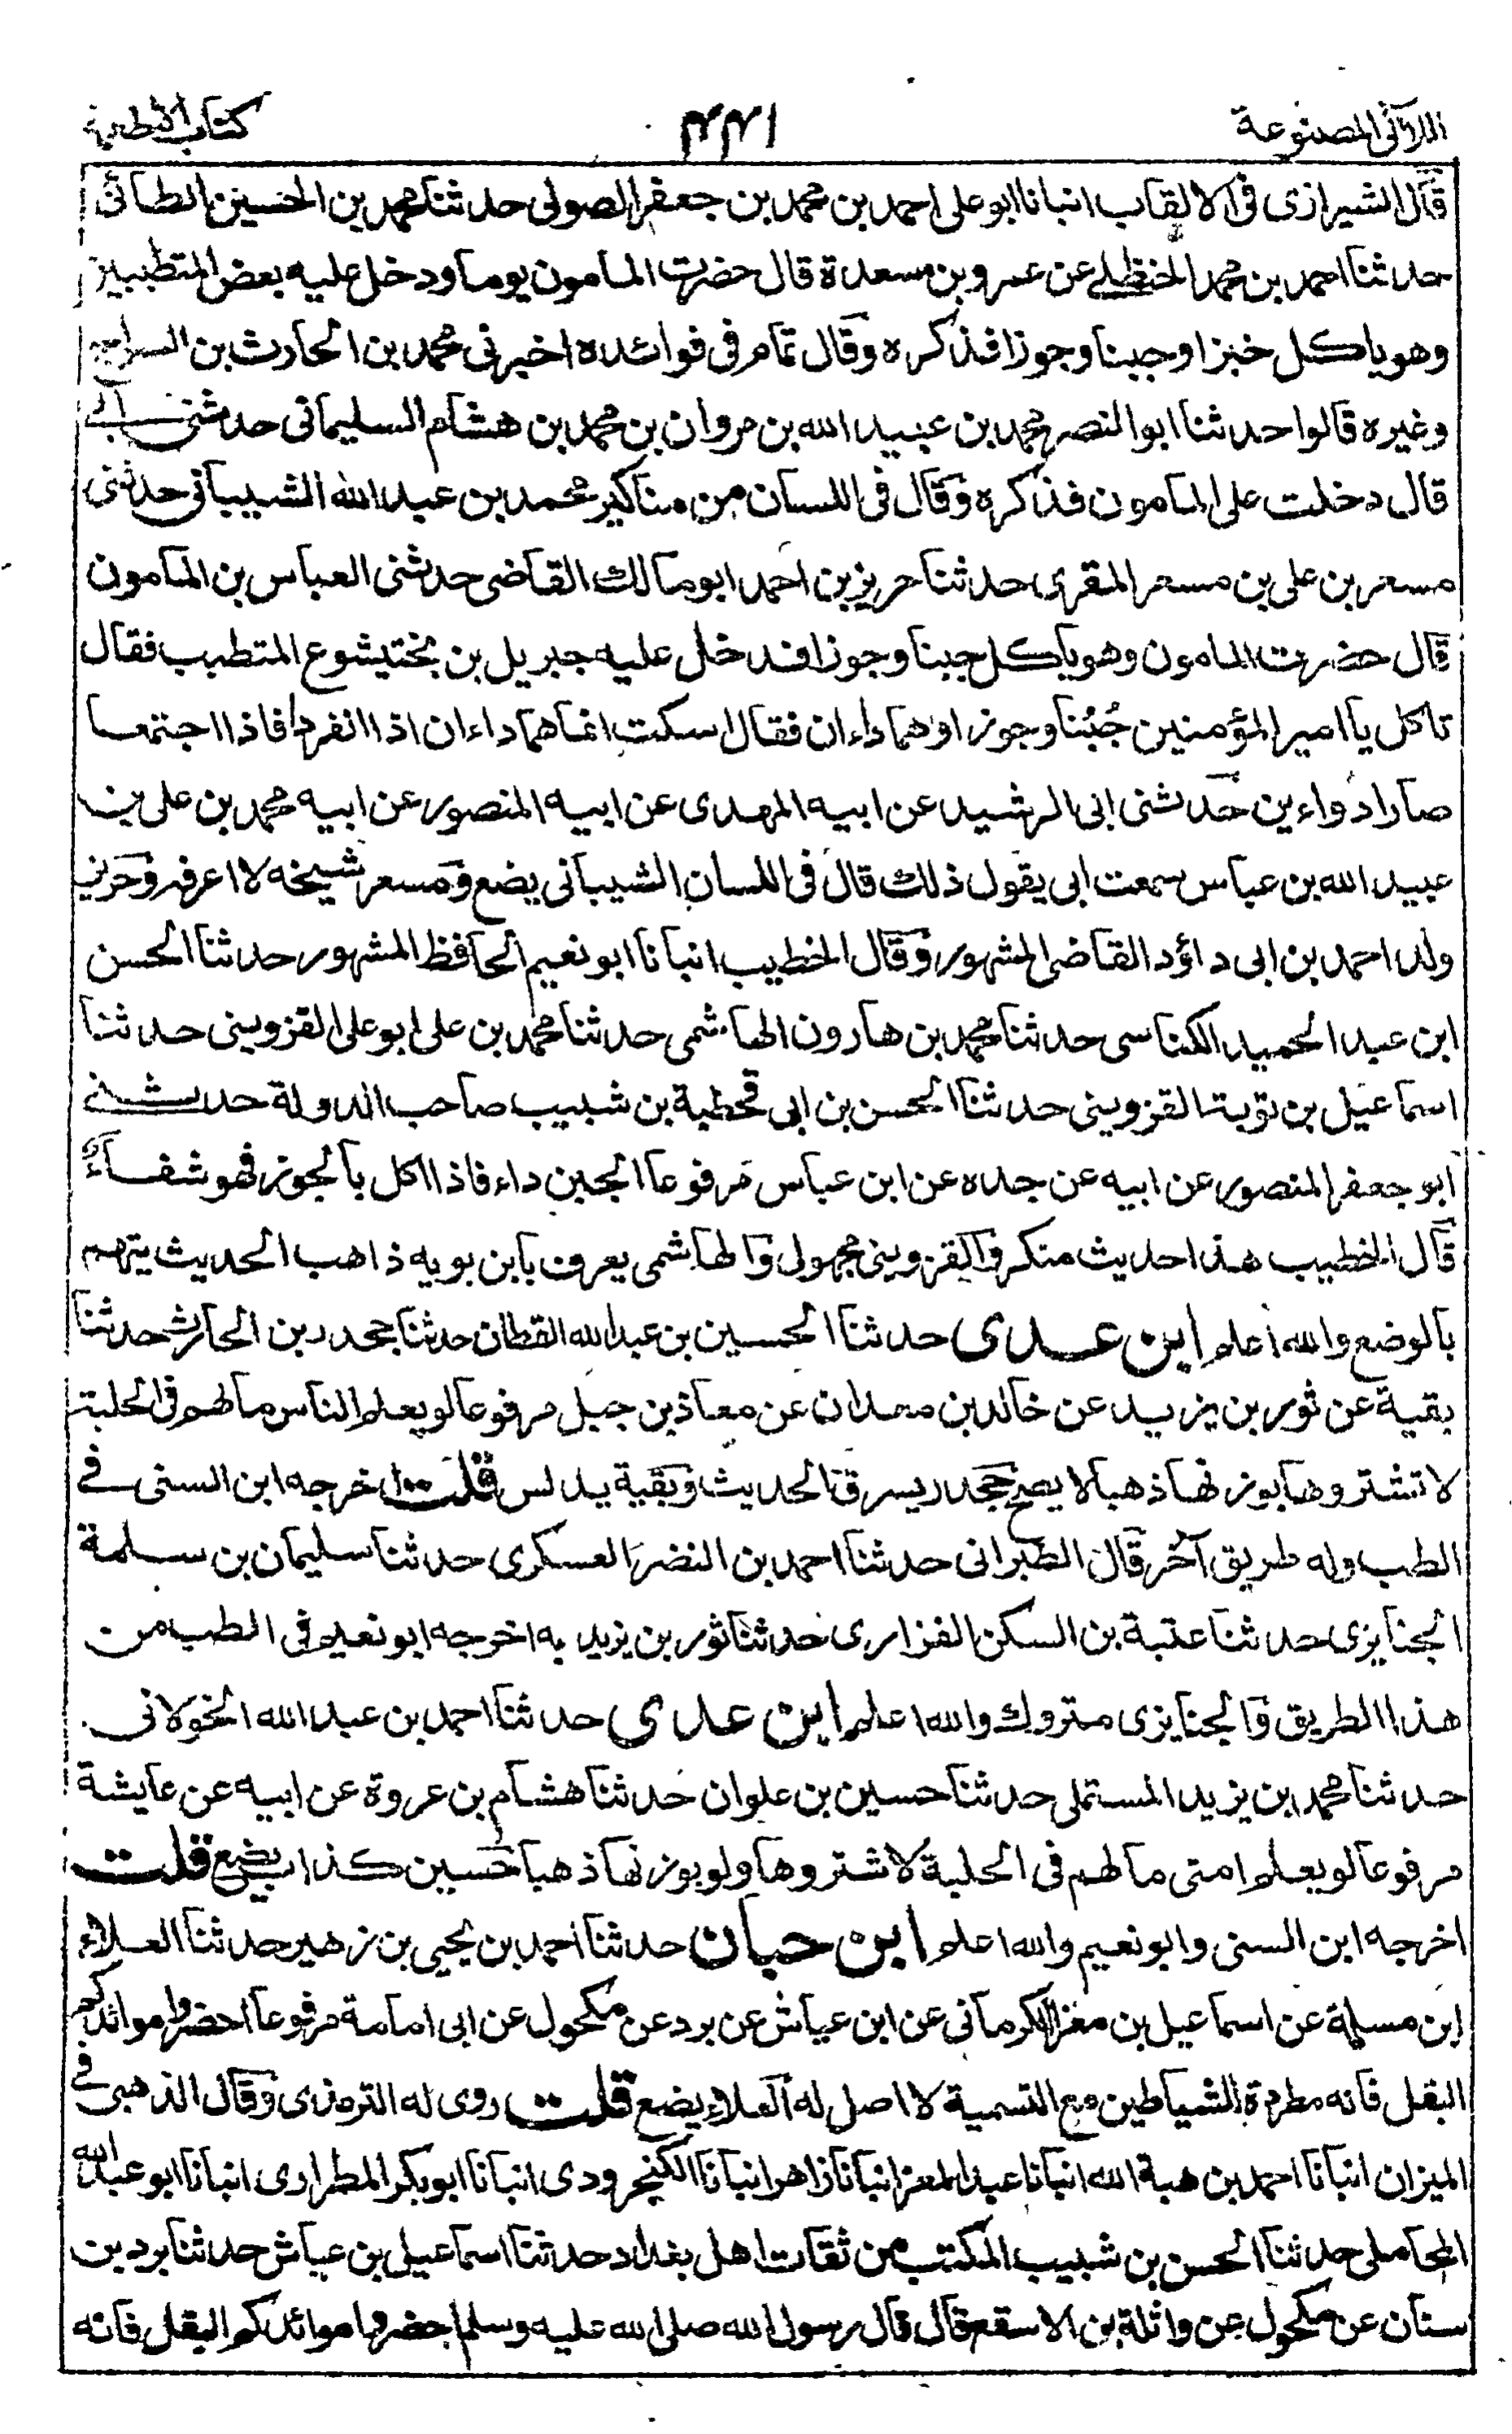 اللآلى المصنوعة ١٢٢ كتاب الاطعمة
قال الشيرازى فى الالقاب انبانا ابو على احمد بن محمد بن جعفر الصولى حدثنا محمد بن الحسين الطائى
حدثنا احمد بن محمد الحنظلى عن عمرو بن مسعدة قال حضرت المامون يوما ودخل عليه بعض المتطببين
وهو ياكل خبزا وجبنا وجوزا فذكره وقال تمام فى فوائده اخبرنى محمد بن الحارث بن السراج
وغيره قالوا حدثنا ابو النصر محمد بن عبيد الله بن مروان بن محمد بن هشام السليمانى حدثنى ابى
قال دخلت على المامون فذكره وقال فى اللسان من مناكير محمد بن عبد الله الشيبانى حدثنى
مسعر بن على بن مسعر المقرى حدثنا حريز بن احمد ابو مالك القاضى حدثنى العباس بن المامون
قال حضرت المامون وهو ياكل جبنا وجوزا فدخل عليه جبريل بن بختيشوع المتطبب فقال
تاكل يا امير المؤمنين جُبُنا وجوزا وهما داءان فقال اسكت انما هما داءان اذا انفردا فاذا اجتمعا
صارا دواءين حدثنى ابى الرشيد عن ابيه المهدى عن ابيه المنصور عن ابيه محمد بن على بن
عبيد الله بن عباس سمعت ابى يقول ذلك قال فى اللسان الشيبانى يضع ومسعر شيخه لا اعرفه وحريز
ولد احمد بن ابى داؤد القاضى المشهور وقال الخطيب انبانا ابو نعيم الحافظ المشهور حدثنا الحسن
ابن عبد الحميد الكناسى حدثنا محمد بن هارون الهاشمى حدثنا محمد بن على ابو على القزوينى حدثنا
اسماعيل بن توبة القزوينى حدثنا الحسن بن ابى قحطبة بن شبيب صاحب الدولة حدثنى
ابو جعفر المنصور عن ابيه عن جده عن ابن عباس مرفوعا الجبن داء فاذا اكل بالجوز فهو شفاء
قال الخطيب هذا حديث منكر والقزوينى مجهول والهاشمى يعرف بابن بويه ذاهب الحديث يتهم
بالوضع والله اعلم ابن عدى حدثنا الحسين بن عبد الله القطان حدثنا جحدر بن الحارث حدثنا
بقية عن ثور بن يزيد عن خالد بن معدان عن معاذ بن جبل مرفوعا لو يعلم الناس ما لهم فى الحلبة
لاشتروها بوزنها ذهبا لا يصح جحدر يسرق الحديث وبقية يدلس قلت اخرجه ابن السنى فى
الطب وله طريق آخر قال الطبرانى حدثنا احمد بن النضر العسكرى حدثنا سليمان بن سلمة
الجنايزى حدثنا عتبة بن السكن الفزارى حدثنا ثور بن يزيد به اخرجه ابو نعيم فى الطب من
هذا الطريق والجنايزى متروك والله اعلم ابن عدى حدثنا احمد بن عبد الله الخولانى
حدثنا محمد بن يزيد المستملى حدثنا حسين بن علوان حدثنا هشام بن عروة عن ابيه عن عايشة
مرفوعا لو يعلم امتى ما لهم فى الحلبة لاشتروها ولو بوزنها ذهبا حسين كذاب يضع قلت
اخرجه ابن السنى وابو نعيم والله اعلم ابن حبان حدثنا احمد بن يحيى بن زهير حدثنا العلاء
ابن مسلمة عن اسماعيل بن مغزا الكرمانى عن ابن عياش عن برد عن مكحول عن ابى امامة مرفوعا احضروا موائدكم
البقل فانه مطردة الشياطين مع التسمية لا اصل له العلاء يضع قلت روى له الترمذى وقال الذهبى فى
الميزان انبانا احمد بن هبة الله انبانا عبد المعز انبانا زاهر انبانا الكنجرودى انبانا ابو بكر المطرارى انبانا ابو عبد الله
المحاملى حدثنا الحسن بن شبيب المكتب من ثقات اهل بغداد حدثنا اسماعيل بن عياش حدثنا برد بن
سنان عن مكحول عن واثلة بن الاسقع قال قال رسول الله صلى الله عليه وسلم احضروا موائدكم البقل فانه